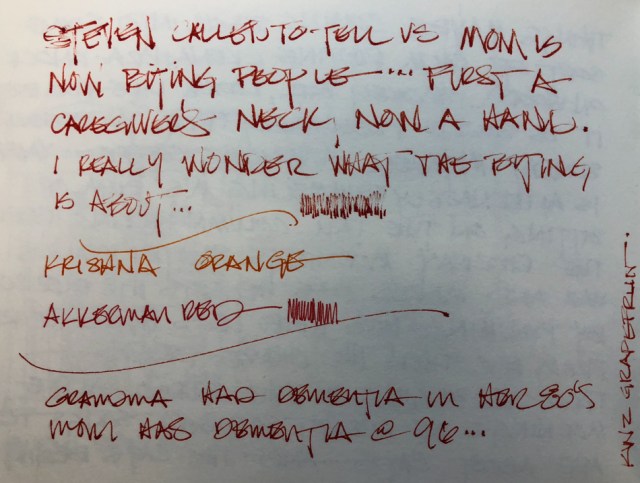 STEVEN CALLED TO TELL US MOM IS
NOW BITING PEOPLE... FIRST A
CAREGIVER'S NECK, NOW A HAND.
I REALLY WONDER WHAT THE BITING
IS ABOUT...
KRISHNA ORANGE
AKKERMAN RED
GRANDMA HAD DEMENTIA IN HER 80'S
MOM HAS DEMENTIA @ 96...
KWZ GRAPEFRUIT.